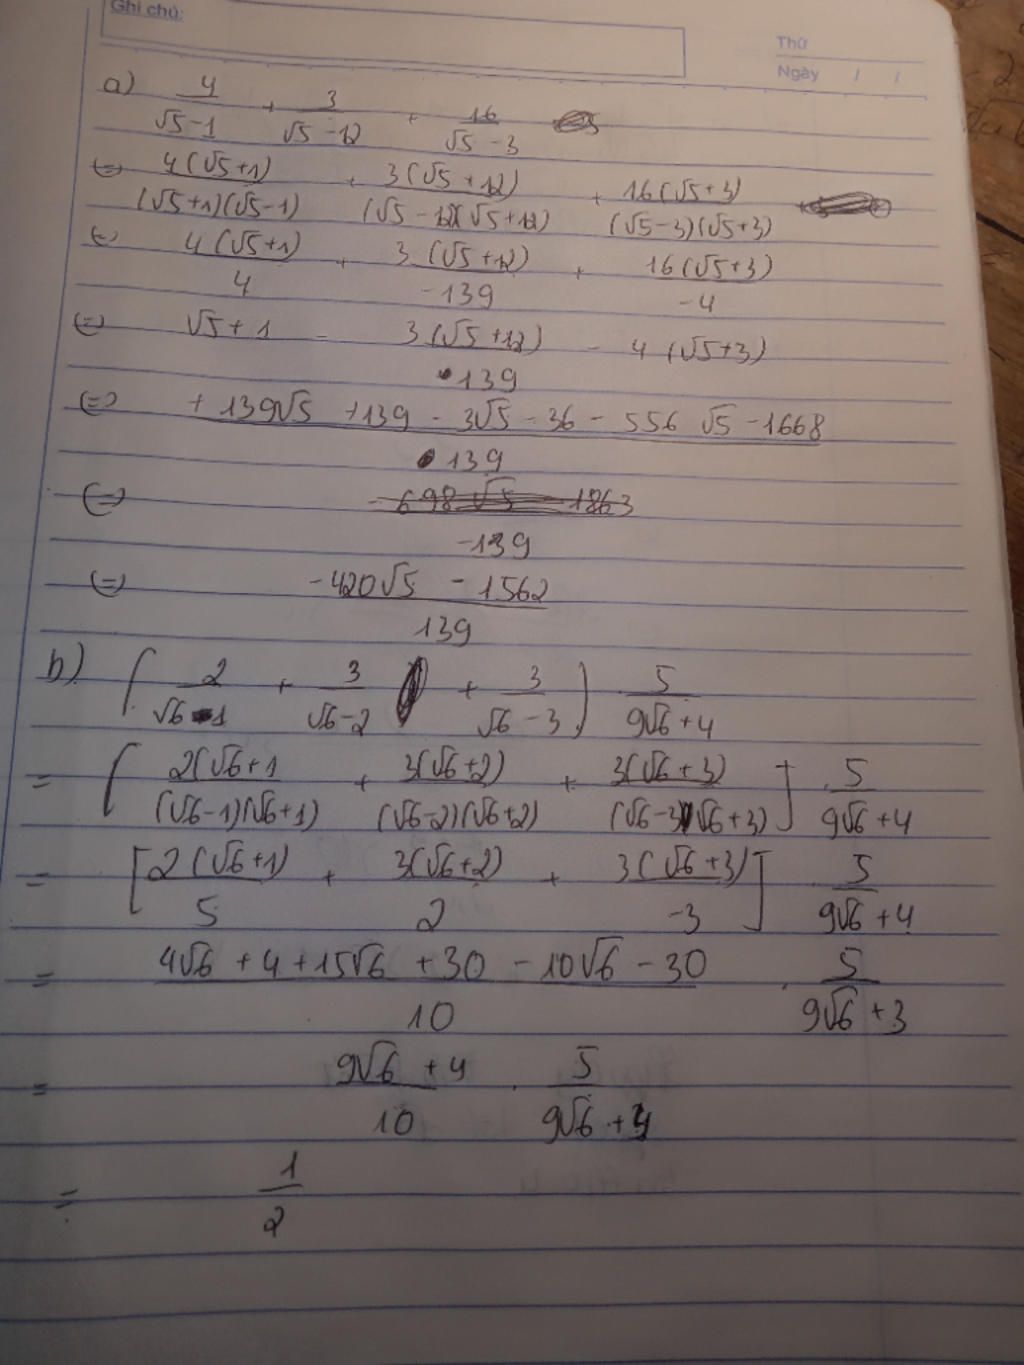 Ghi chú:
Thứ
Ngày / /
a) 4/(√5-1) + 3/(√5-12) + 16/(√5-3)
(=) 4(√5+1)/((√5+1)(√5-1)) + 3(√5+12)/((√5-12)(√5+12)) + 16(√5+3)/((√5-3)(√5+3))
(=) 4(√5+1)/4 + 3(√5+12)/-139 + 16(√5+3)/-4
(=) √5+1 - 3(√5+12)/139 - 4(√5+3)
(=) (+139√5 +139 - 3√5 - 36 - 556√5 - 1668)/139
(=) (-698√5 - 1863)/-139
(=) (-420√5 - 1562)/139
b) (2/(√6-1) + 3/(√6-2) + 3/(√6-3)) 5/(9√6+4)
= [2(√6+1/((√6-1)(√6+1)) + 3(√6+2)/((√6-2)(√6+2)) + 3(√6+3)/((√6-3)(√6+3))] . 5/(9√6+4)
= [2(√6+1)/5 + 3(√6+2)/2 + 3(√6+3)/-3] . 5/(9√6+4)
= (4√6 + 4 + 15√6 + 30 - 10√6 - 30)/10 . 5/(9√6+3)
= (9√6+4)/10 . 5/(9√6+4)
= 1/2